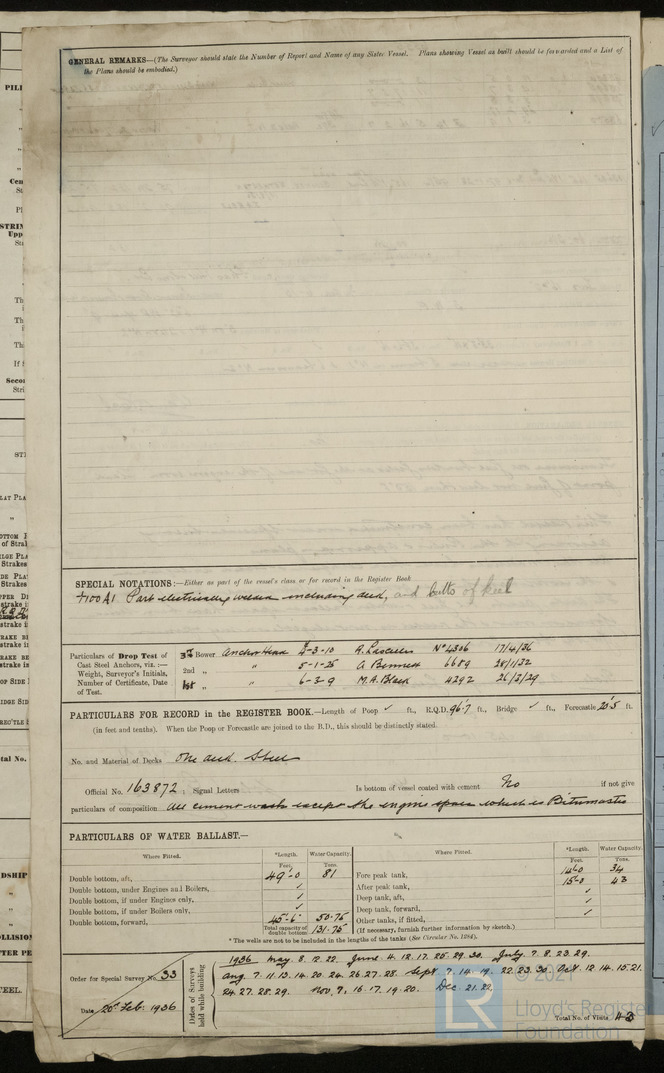 GENERAL REMARKS—(The Surveyor should state the Number of Report and Name of any Sister Vessel. Plans showing Vessel as built should be forwarded and a List of
the Plans should be embodied.)
SPECIAL NOTATIONS:—Either as part of the vessel's class or for record in the Register Book
+100A1 Part electrically welded including deck, and butts of keel
Particulars of Drop Test of
Cast Steel Anchors, viz. :—
Weight, Surveyor's Initials,
Number of Certificate, Date
of Test.
Bower Anchor Head 5-3-10 R. Nº 4306 17/4/36
2nd „ „ 5-1-25 A. Bennett 6689 28/1/32
1st „ „ 6-3-9 M.A. Black 4292 26/3/29
PARTICULARS FOR RECORD in the REGISTER BOOK.—Length of Poop ✓ ft., R.Q.D. 96·7 ft., Bridge ✓ ft., Forecastle 20·5 ft.
(in feet and tenths). When the Poop or Forecastle are joined to the B.D., this should be distinctly stated.
No. and Material of Decks One deck. Steel
Official No. 163872 ; Signal Letters Is bottom of vessel coated with cement No if not give
particulars of composition All cement wash except the engine space which is Bitumastic
PARTICULARS OF WATER BALLAST.—
Where Fitted. *Length. Water Capacity. Where Fitted. *Length. Water Capacity.
Feet. Tons. Feet. Tons.
Double bottom, aft, 49'-0 81 Fore peak tank, 14'-0 34
Double bottom, under Engines and Boilers, ✓ After peak tank, 15'-0 43
Double bottom, if under Engines only, ✓ Deep tank, aft, ✓
Double bottom, if under Boilers only, ✓ Deep tank, forward, ✓
Double bottom, forward, 45'-6" 50·75 Other tanks, if fitted, ✓
Total capacity of double bottom 131·75 (If necessary, furnish further information by sketch.)
* The wells are not to be included in the lengths of the tanks (See Circular No. 1284).
Order for Special Survey No. 33
Date 20th Feb. 1936
Dates of Surveys held while building
1936 May 8. 12. 22. June 4. 12. 17. 25. 29. 30. July 7. 8. 23. 29.
Aug. 7. 11. 13. 14. 20. 24. 26. 27. 28. Sept 7. 14. 19. 22. 23. 30. Oct. 12. 14. 15. 21.
24. 27. 28. 29. Nov. 9. 16. 17. 19. 20. Dec. 21. 22.
Total No. of Visits 43
© 2021
LR
Lloyd's Register
Foundation